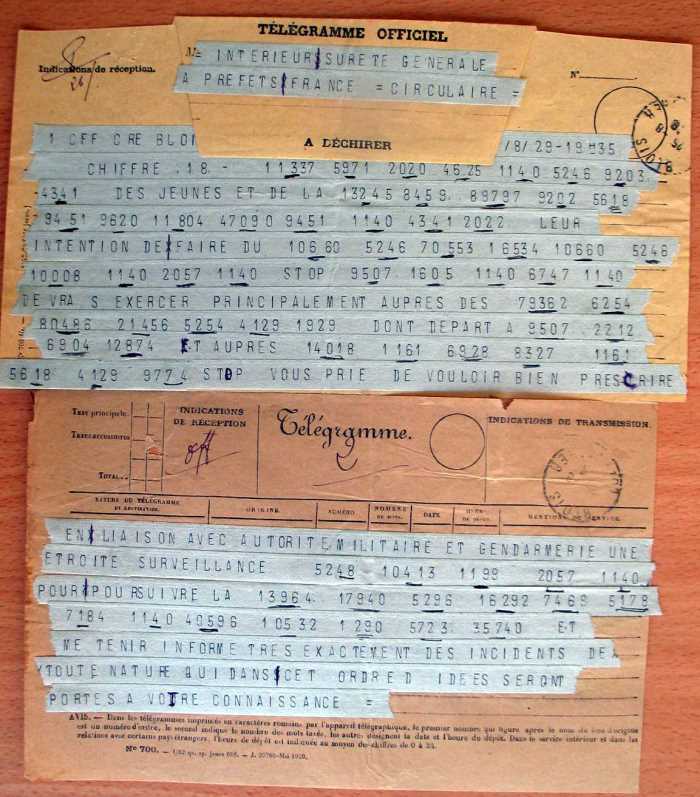 TÉLÉGRAMME OFFICIEL
INTERIEUR SURETE GENERALE
Indications de réception.
N°
A PREFETS FRANCE = CIRCULAIRE =
A DÉCHIRER
1 CFF CRE BLOI /8/ 29-19H35
BLOIS
CHIFFRE .18.- 11337 5971 2020 4625 1140 5246 9203
4341 DES JEUNES ET DE LA 13245 8459 89797 9202 5618
9451 9620 11804 47090 9451 1140 4341 2022 LEUR
INTENTION DE FAIRE DU 10660 5246 70553 16534 10660 5246
10008 1140 2057 1140 STOP 9507 1605 1140 6747 1140
DEVRA S EXERCER PRINCIPALEMENT AUPRES DES 79362 6254
80486 21456 5254 4129 1929 DONT DEPART A 9507 2212
6904 12874 ET AUPRES 14018 1161 6928 8327 1161
5618 4129 9774 STOP VOUS PRIE DE VOULOIR BIEN PRESCRIRE
Taxe principale.
Taxes accessoires
Total...
INDICATIONS DE RÉCEPTION
off
Télégramme.
INDICATIONS DE TRANSMISSION.
NATURE DU TÉLÉGRAMME ET DESTINATION. ORIGINE. NUMÉRO. NOMBRE DE MOTS. DATE. HEURE DE DÉPÔT. MENTIONS DE SERVICE.
EN LIAISON AVEC AUTORITE MILITAIRE ET GENDARMERIE UNE
ETROITE SURVEILLANCE 5248 10413 1199 2057 1140
POUR POURSUIVRE LA 13964 17940 5296 16292 7469 5178
7184 1140 40596 10532 1290 5723 35740 ET
ME TENIR INFORME TRES EXACTEMENT DES INCIDENTS DE
TOUTE NATURE QUI DANS CET ORDRE D IDEES SERONT
PORTES A VOTRE CONNAISSANCE =
AVIS. — Dans les télégrammes imprimés en caractères romains par l'appareil télégraphique, le premier nombre qui figure après le nom du lieu d'origine
est un numéro d'ordre, le second indique le nombre des mots taxés, les autres désignent la date et l'heure du dépôt. Dans le service intérieur et dans les
relations avec certains pays étrangers, l'heure de dépôt est indiquée au moyen des chiffres de 0 à 24.
N° 700.